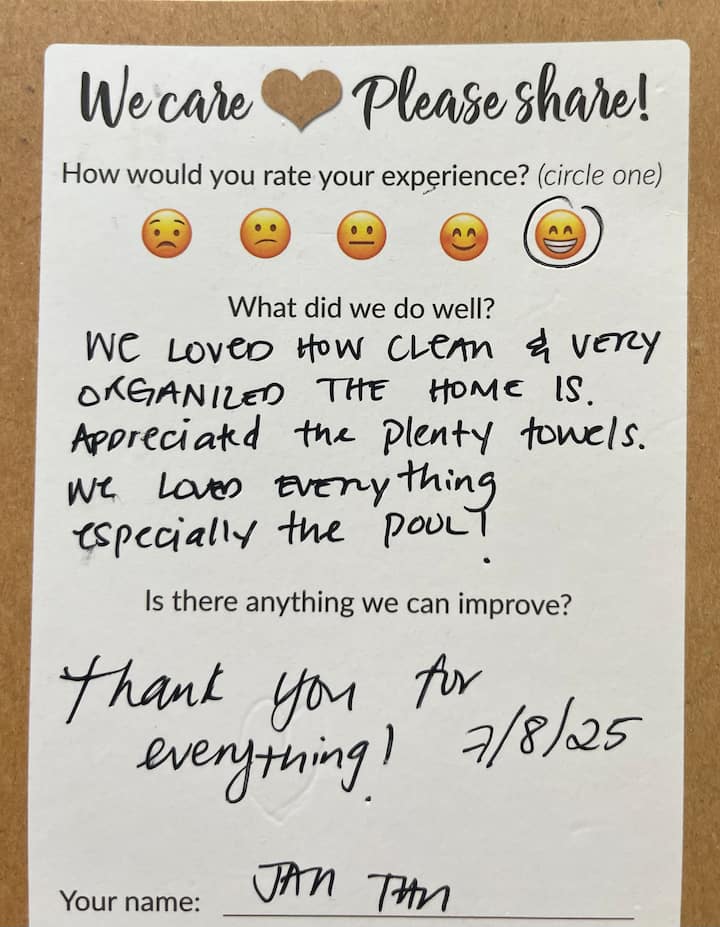 We care Please share!
How would you rate your experience? (circle one)
What did we do well?
WE LOVED HOW CLEAN & VERY
ORGANIZED THE HOME IS.
Appreciated the plenty towels.
We Loved EVERYthing
especially the POOL!
Is there anything we can improve?
Thank you for
everything! 7/8/25
Your name: JAN TAN